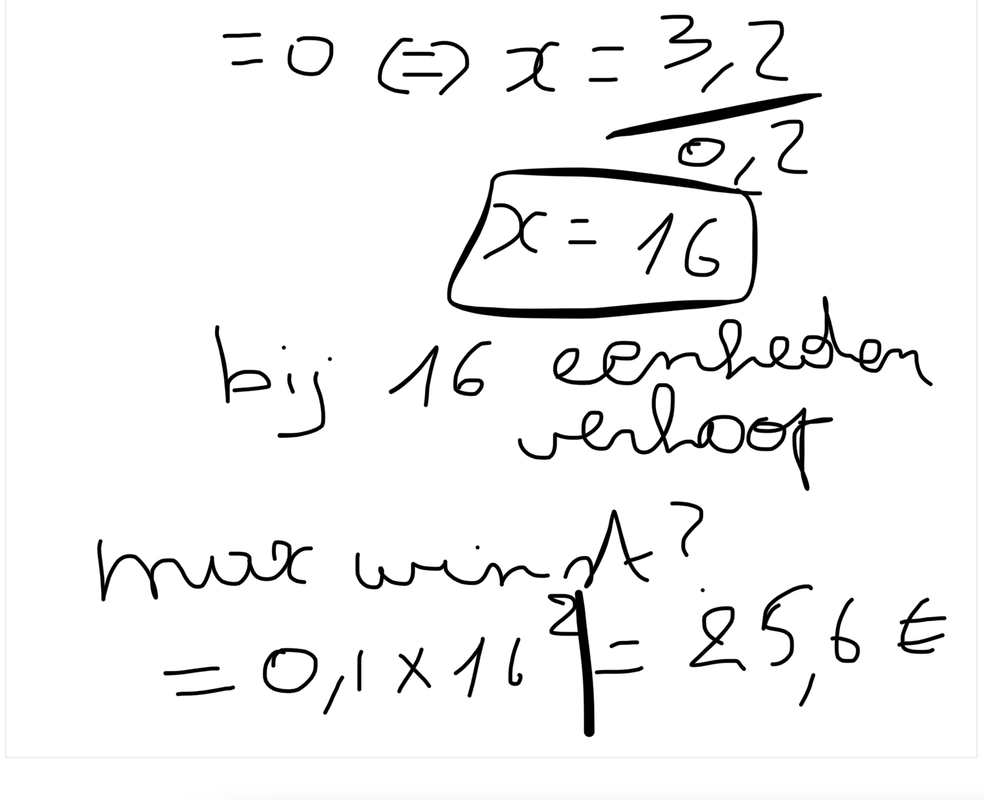 = 0 ⇔ x = 3,2
0,2
x = 16
bij 16 eenheden
verkoop
max winst?
= 0,1 × 16² = 25,6 €